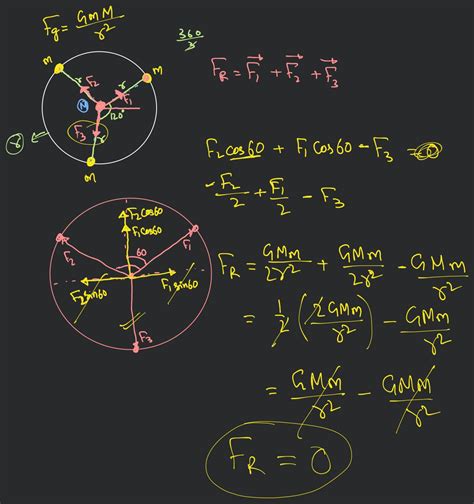 Fg = GmM/r²
360/3
m
m
F₂
r
r
F₁
M
120°
F₃
r
m
F_R = F₁ + F₂ + F₃
F₂cos60 + F₁cos60 - F₃ = 0
F₂/2 + F₁/2 - F₃
F₂cos60
F₁cos60
F₂
60
F₁
F₂sin60
F₁sin60
F₃
F_R = GMm/2r² + GMm/2r² - GMm/r²
= 1/2 (2GMm/r²) - GMm/r²
= GMm/r² - GMm/r²
F_R = 0